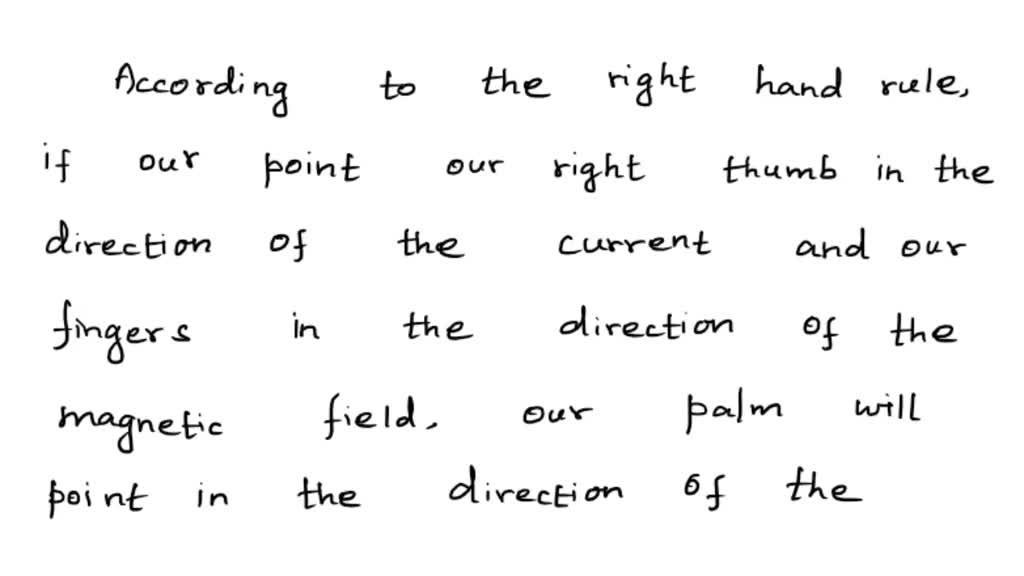 According to the right hand rule,
if our point our right thumb in the
direction of the current and our
fingers in the direction of the
magnetic field, our palm will
point in the direction of the